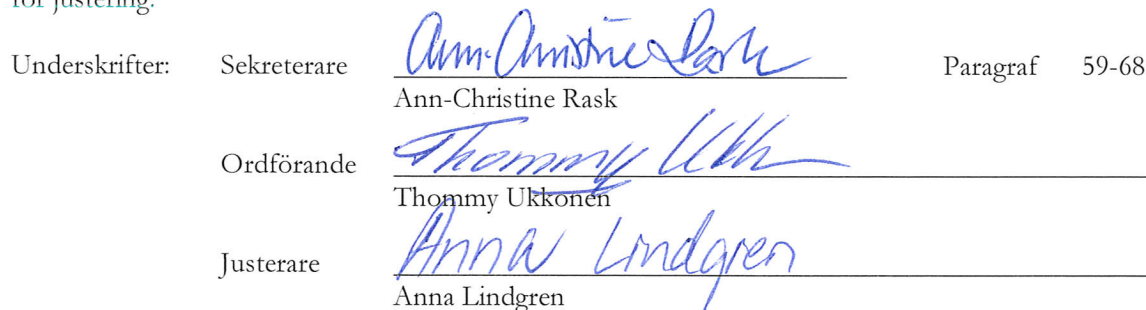 för justering.
Underskrifter: Sekreterare Ann-Christine Rask Paragraf 59-68
Ann-Christine Rask
Ordförande Thommy Ukk
Thommy Ukkonen
Justerare Anna Lindgren
Anna Lindgren